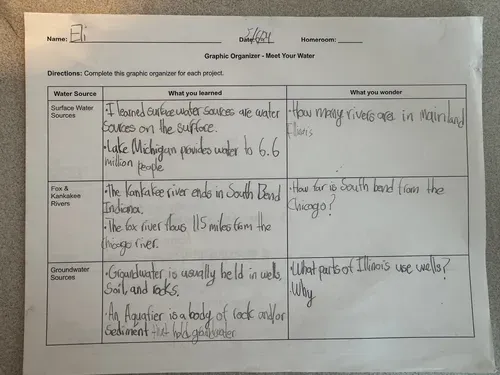 Name: Eli
Date: 5/6/24
Homeroom: ____
Graphic Organizer - Meet Your Water
Directions: Complete this graphic organizer for each project.
Water Source
What you learned
What you wonder
Surface Water
Sources
• I learned surface water sources are water
sources on the surface.
• Lake Michigan provides water to 6.6
million people
• How many rivers are in mainland
Illinois
Fox &
Kankakee
Rivers
• The Kankakee river ends in South Bend
Indiana.
• The fox river flows 115 miles from the
chicago river.
• How far is South bend from the
Chicago?
Groundwater
Sources
• Groundwater is usually held in wells,
Soil, and rocks.
• An Aquafier is a body of rock and/or
Sediment that holds groundwater
• What parts of Illinois use wells?
• Why